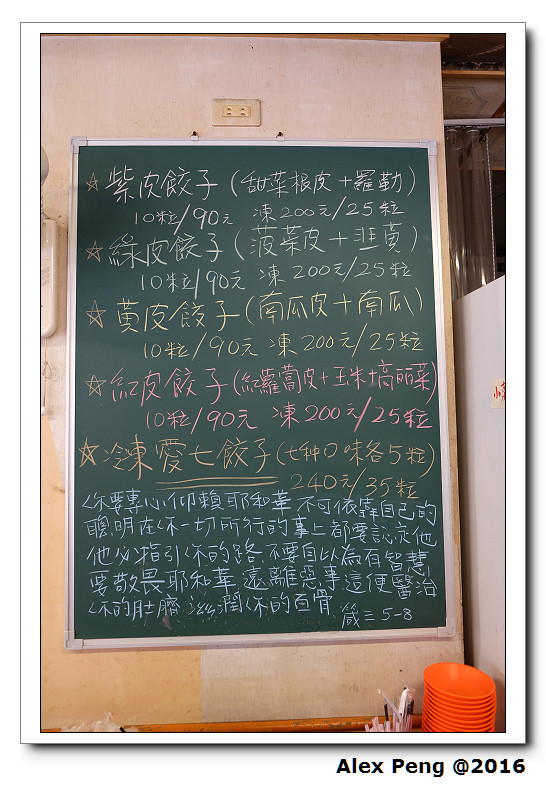 ☆紫皮餃子(甜菜根皮+羅勒)
10粒/90元 凍200元/25粒
☆綠皮餃子(菠菜皮+韭黄)
10粒/90元 凍200元/25粒
☆黃皮餃子(南瓜皮+南瓜)
10粒/90元 凍200元/25粒
☆紅皮餃子(紅蘿蔔皮+玉米高麗菜)
10粒/90元 凍200元/25粒
☆冷凍愛七餃子(七种口味各5粒)
240元/35粒
你要專心仰賴耶和華不可依靠自己的
聰明在你一切所行的事上都要認定他
他必指引你的路不要自以為有智慧
要敬畏耶和華遠離惡事這便醫治
你的肚臍滋潤你的百骨
箴三5-8
Alex Peng @2016